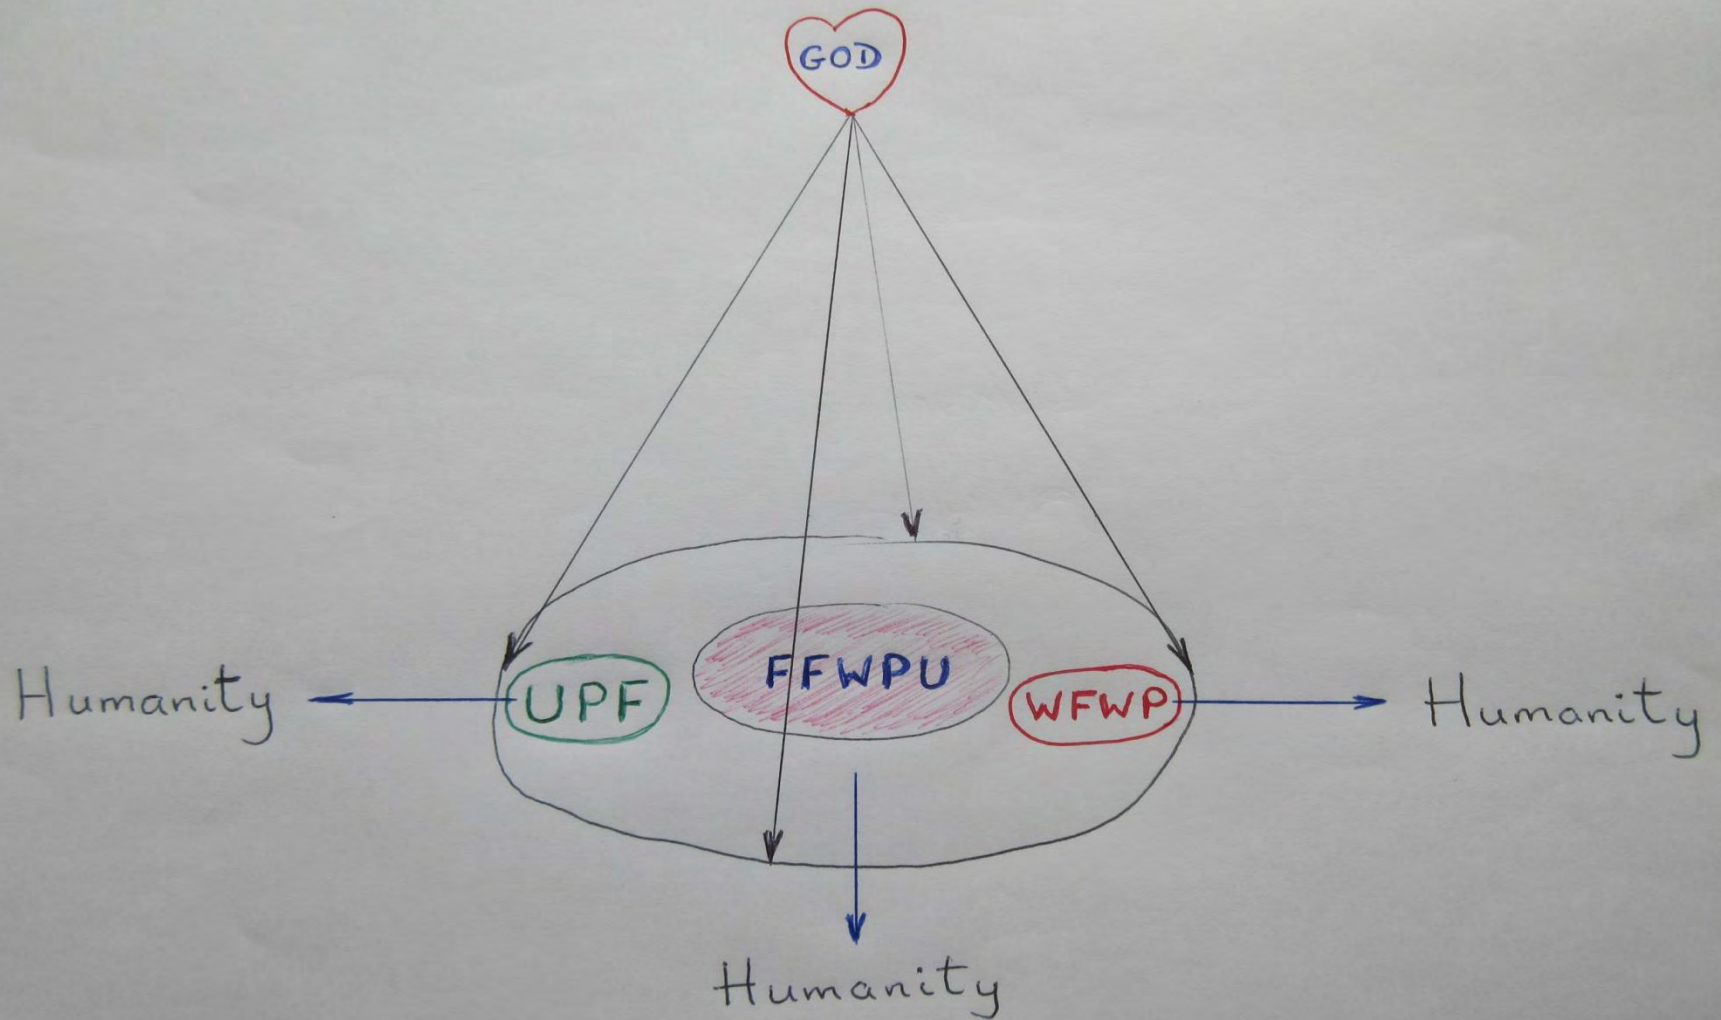 GOD
Humanity
UPF
FFWPU
WFWP
Humanity
Humanity